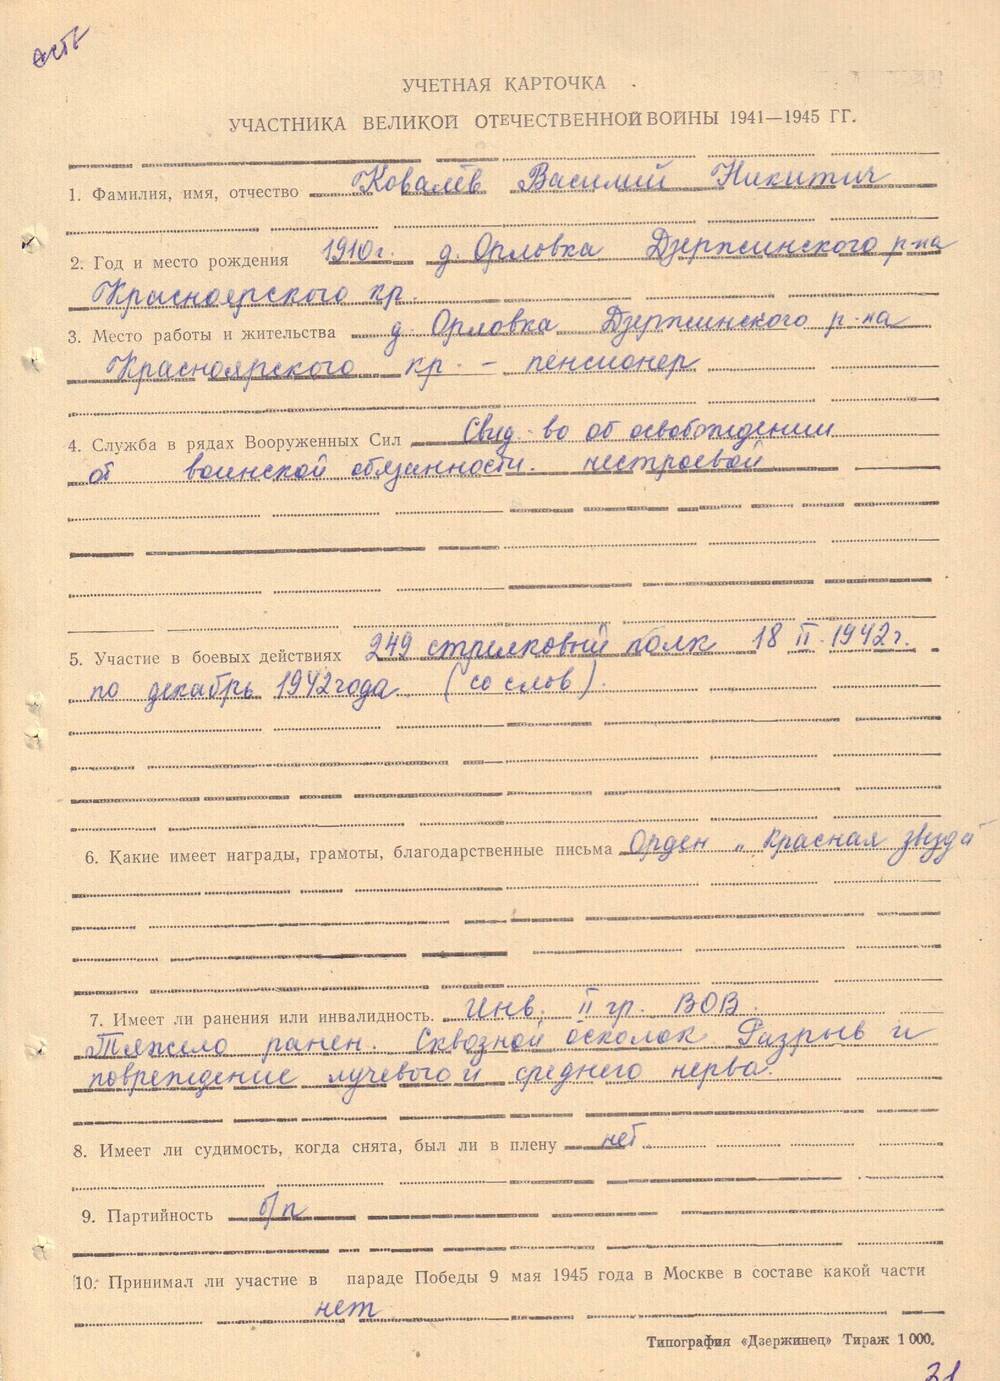 есть
УЧЕТНАЯ КАРТОЧКА
УЧАСТНИКА ВЕЛИКОЙ ОТЕЧЕСТВЕННОЙ ВОЙНЫ 1941—1945 ГГ.
1. Фамилия, имя, отчество Ковалёв Василий Никитич
2. Год и место рождения 1910 г. д. Орловка Дзержинского р-на
Красноярского кр.
3. Место работы и жительства д. Орловка Дзержинского р-на
Красноярского кр. - пенсионер
4. Служба в рядах Вооруженных Сил Свид-во об освобождении
от воинской обязанности. нестроевой
5. Участие в боевых действиях 249 стрелковый полк 18 II. 1942 г.
по декабрь 1942 года (со слов).
6. Какие имеет награды, грамоты, благодарственные письма Орден „Красная звезда"
7. Имеет ли ранения или инвалидность. Инв. II гр. ВОВ.
Тяжело ранен. Сквозной осколок Разрыв и
повреждение лучевого и среднего нерва.
8. Имеет ли судимость, когда снята, был ли в плену нет
9. Партийность б/п
10. Принимал ли участие в параде Победы 9 мая 1945 года в Москве в составе какой части
нет
Типография «Дзержинец» Тираж 1 000.